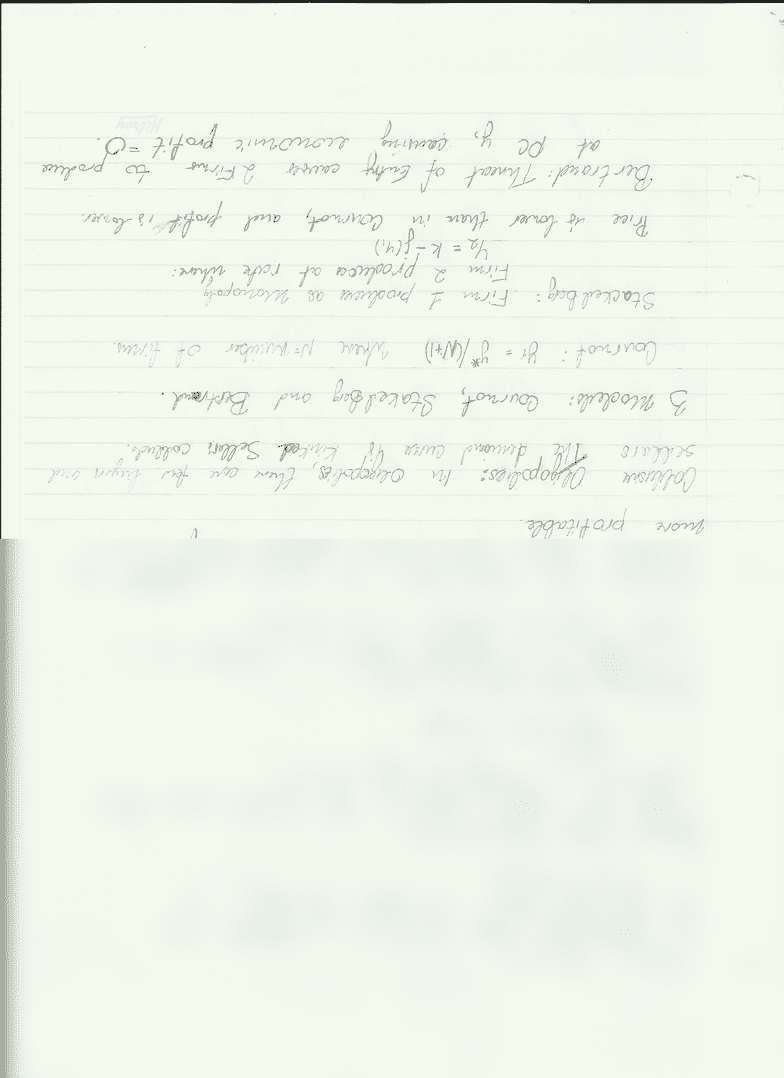 more profitable.
Collusive Oligopolies: In oligopolies, there are few buyers and
sellers The demand curve is kinked. Sellers collude.
3 Models: Cournot, Stakelberg and Bertrand.
Cournot: yi = y*/(N+1) where N=number of firms.
Stackelberg: Firm 1 produces as Monopoly
Firm 2 produces at rate where:
y2 = k - f(y1)
Price is lower than in Cournot, and profit is lower.
Bertrand: Threat of Entry causes 2 Firms to produce
at PC y, causing economic profit = 0.